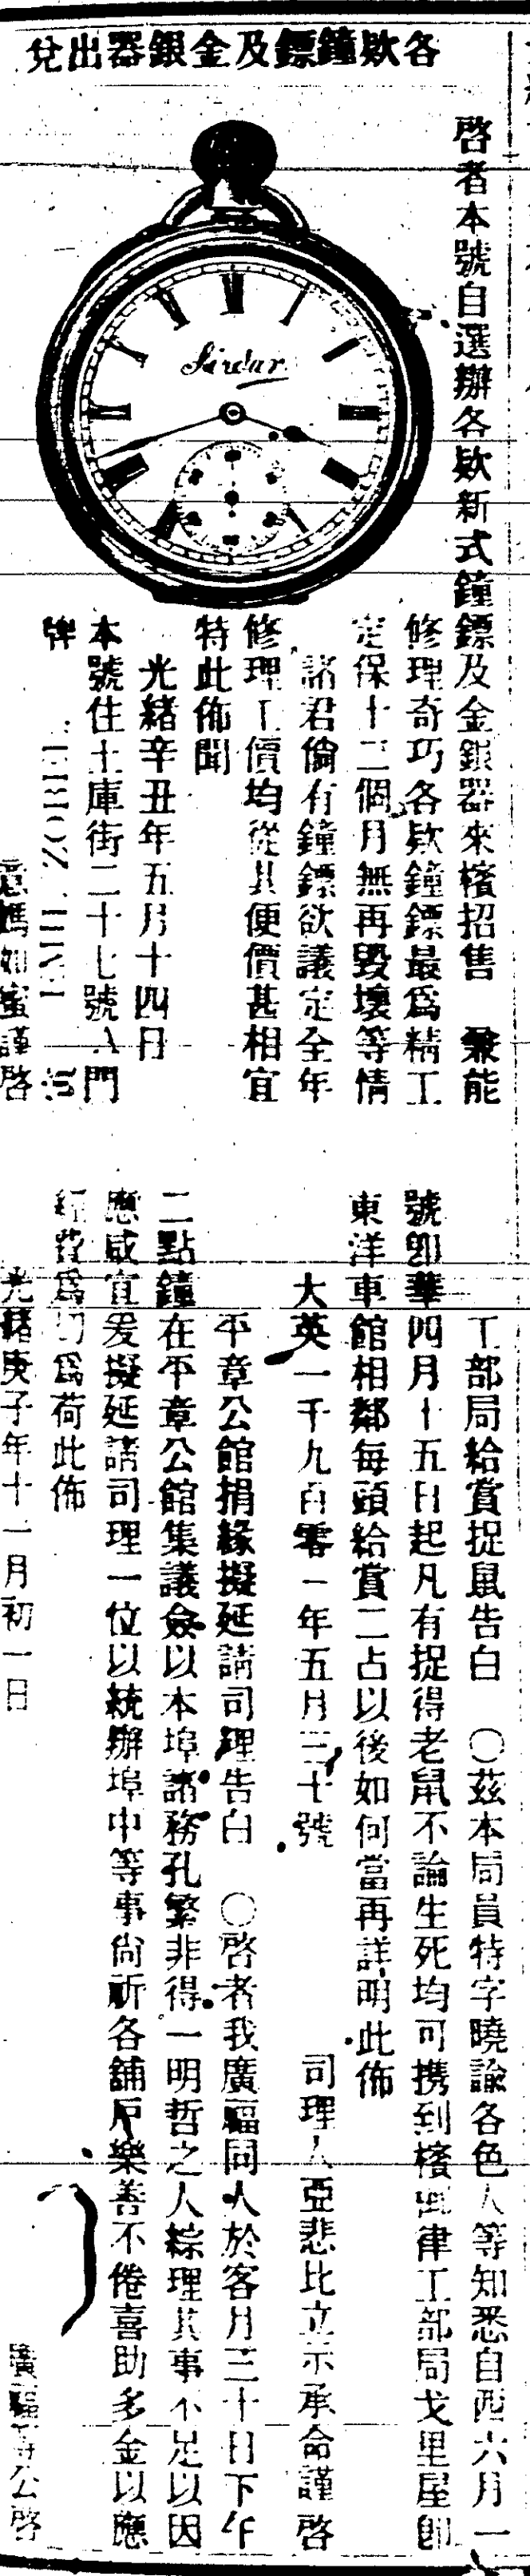 各欵鐘鏢及金銀器出兌
Sirdar
啓者本號自選辦各欵新式鐘鏢及金銀器來檳招售 兼能
修理奇巧各欵鐘鏢最爲精工
定保十二個月無再毀壞等情
諸君倘有鐘鏢欲議定全年
修理工價均從其便價甚相宜
特此佈聞
光緒辛丑年五月十四日
本號住土庫街二十七號入門
牌
媽如蜜謹啓
工部局給賞捉鼠告白 ○茲本局員特字曉諭各色人等知悉自西六月一
號卽華四月十五日起凡有捉得老鼠不論生死均可携到檳律工部局戈里屋卽
東洋車館相鄰每頭給賞二占以後如何當再詳明此佈
大英一千九百零一年五月三十號 司理人亞悲比立示承命謹啓
平章公館捐緣擬延請司理告白 ○啓者我廣福同人於客月三十日下午
二點鐘在平章公館集議僉以本埠諸務孔繁非得一明哲之人綜理其事不足以因
應咸宜爰擬延請司理一位以統辦埠中等事尙祈各舖戶樂善不倦喜助多金以應
經費爲切爲荷此佈
光緒庚子年十一月初一日 廣福公啓